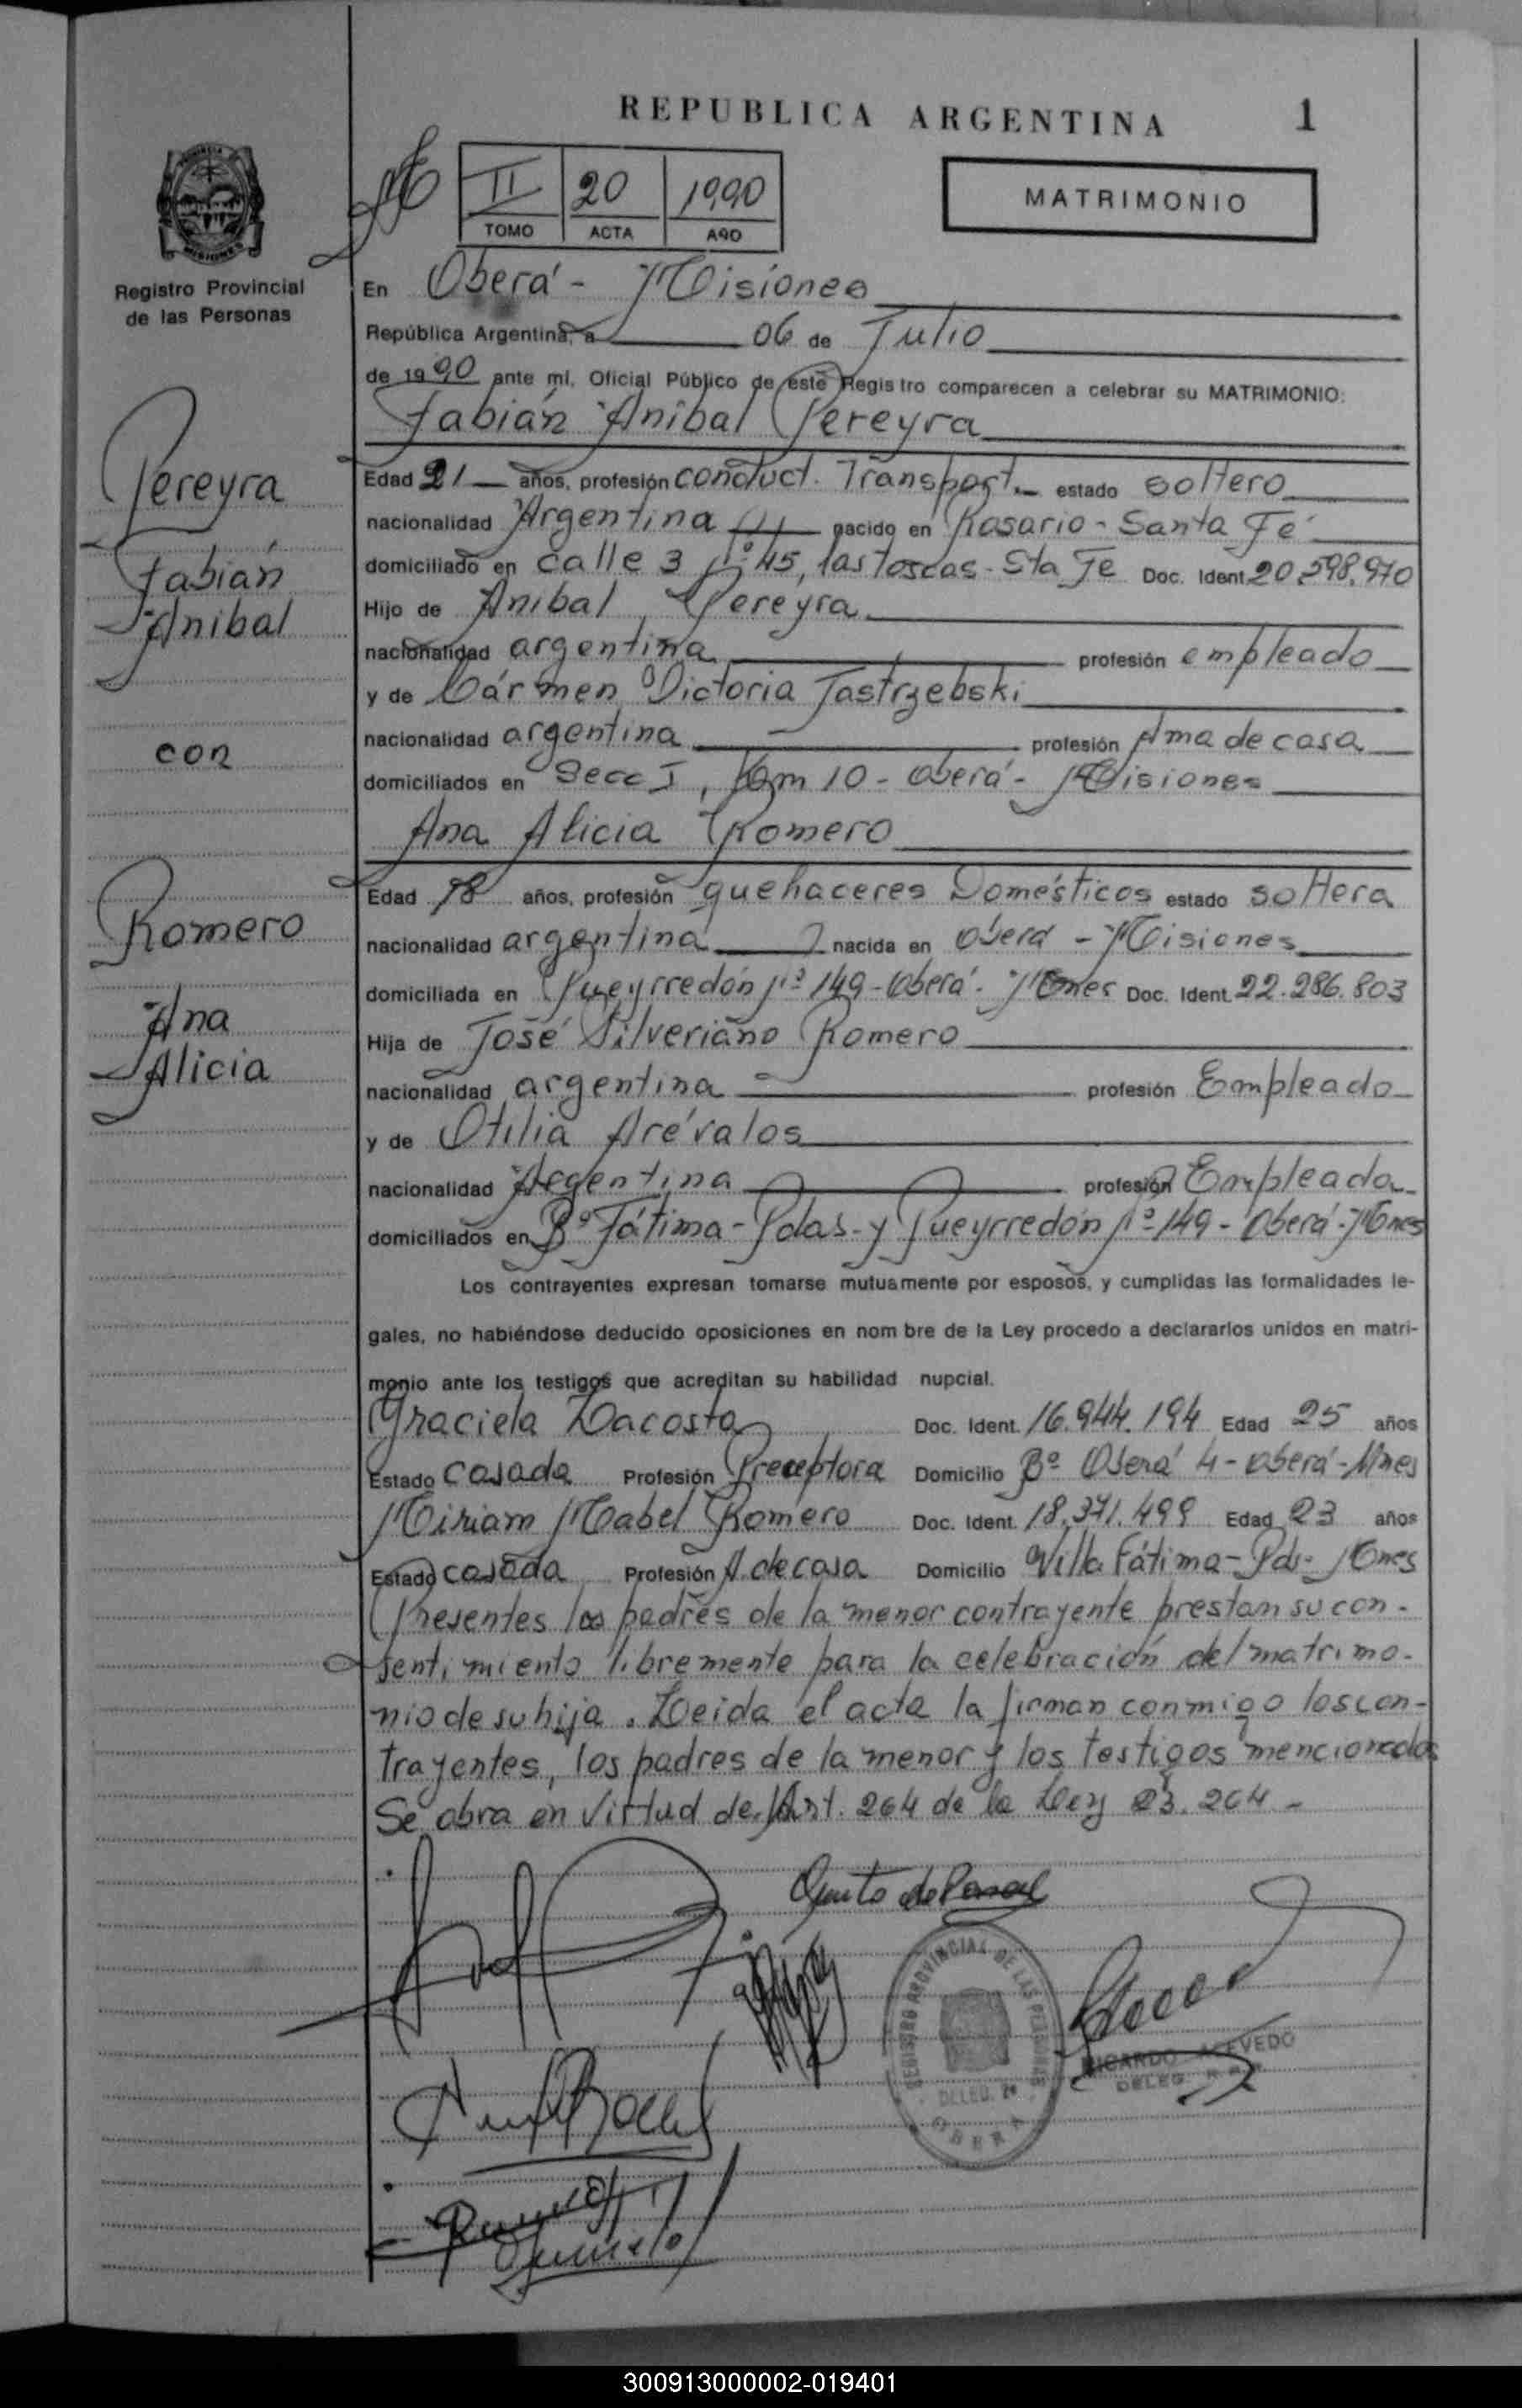 REPUBLICA ARGENTINA 1
PROVINCIA
MISIONES
II 20 1990
TOMO ACTA AÑO
MATRIMONIO
Registro Provincial
de las Personas
En Oberá - Misiones
República Argentina, a 06 de Julio
de 1990 ante mi, Oficial Público de este Registro comparecen a celebrar su MATRIMONIO:
Fabián Anibal Pereyra
Pereyra
Fabián
Anibal
con
Romero
Ana
Alicia
Edad 21 años, profesión conduct. Transport. estado soltero
nacionalidad Argentina nacido en Rosario - Santa Fé
domiciliado en calle 3 Nº 45, las Toscas - Sta Fe Doc. Ident. 20.598.970
Hijo de Anibal Pereyra
nacionalidad argentina profesión empleado
y de Cármen Victoria Jastrzebski
nacionalidad argentina profesión Ama de casa
domiciliados en Secc I, Km 10 - Oberá - Misiones
Ana Alicia Romero
Edad 18 años, profesión quehaceres Domésticos estado soltera
nacionalidad argentina nacida en Oberá - Misiones
domiciliada en Pueyrredón Nº 149 - Oberá - Mnes Doc. Ident. 22.286.803
Hija de José Silveriano Romero
nacionalidad argentina profesión Empleado
y de Otilia Arévalos
nacionalidad Argentina profesión Empleada
domiciliados en Bº Fátima - Pdas - y Pueyrredón Nº 149 - Oberá - Mnes
Los contrayentes expresan tomarse mutuamente por esposos, y cumplidas las formalidades le-
gales, no habiéndose deducido oposiciones en nom bre de la Ley procedo a declararlos unidos en matri-
monio ante los testigos que acreditan su habilidad nupcial.
Graciela Dacosta Doc. Ident. 16.944.194 Edad 25 años
Estado casada Profesión Preceptora Domicilio Bº Oberá 4 - Oberá - Mnes
Miriam Mabel Romero Doc. Ident. 18.371.499 Edad 23 años
Estado casada Profesión A. de casa Domicilio Villa Fátima - Pds - Mnes
Presentes los padres de la menor contrayente prestan su con-
sentimiento libremente para la celebración del matrimo-
nio de su hija. Leida el acta la firman conmigo los con-
trayentes, los padres de la menor y los testigos mencionados
Se obra en virtud del Art. 264 de la Ley 23.264 -
REGISTRO PROVINCIAL DE LAS PERSONAS
DELEG.
OBERA
RICARDO ACEVEDO
DELEG. R.P.P.
300913000002-019401